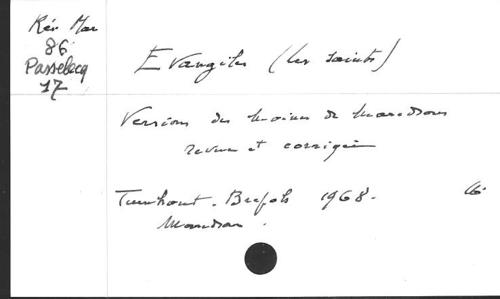 Rév Mar
86
Passelecq
17
Evangiles (les saints)
Version des Moines de Maredsous
revue et corrigée
Turnhout. Brepols 1968.
16.
Maredsous.